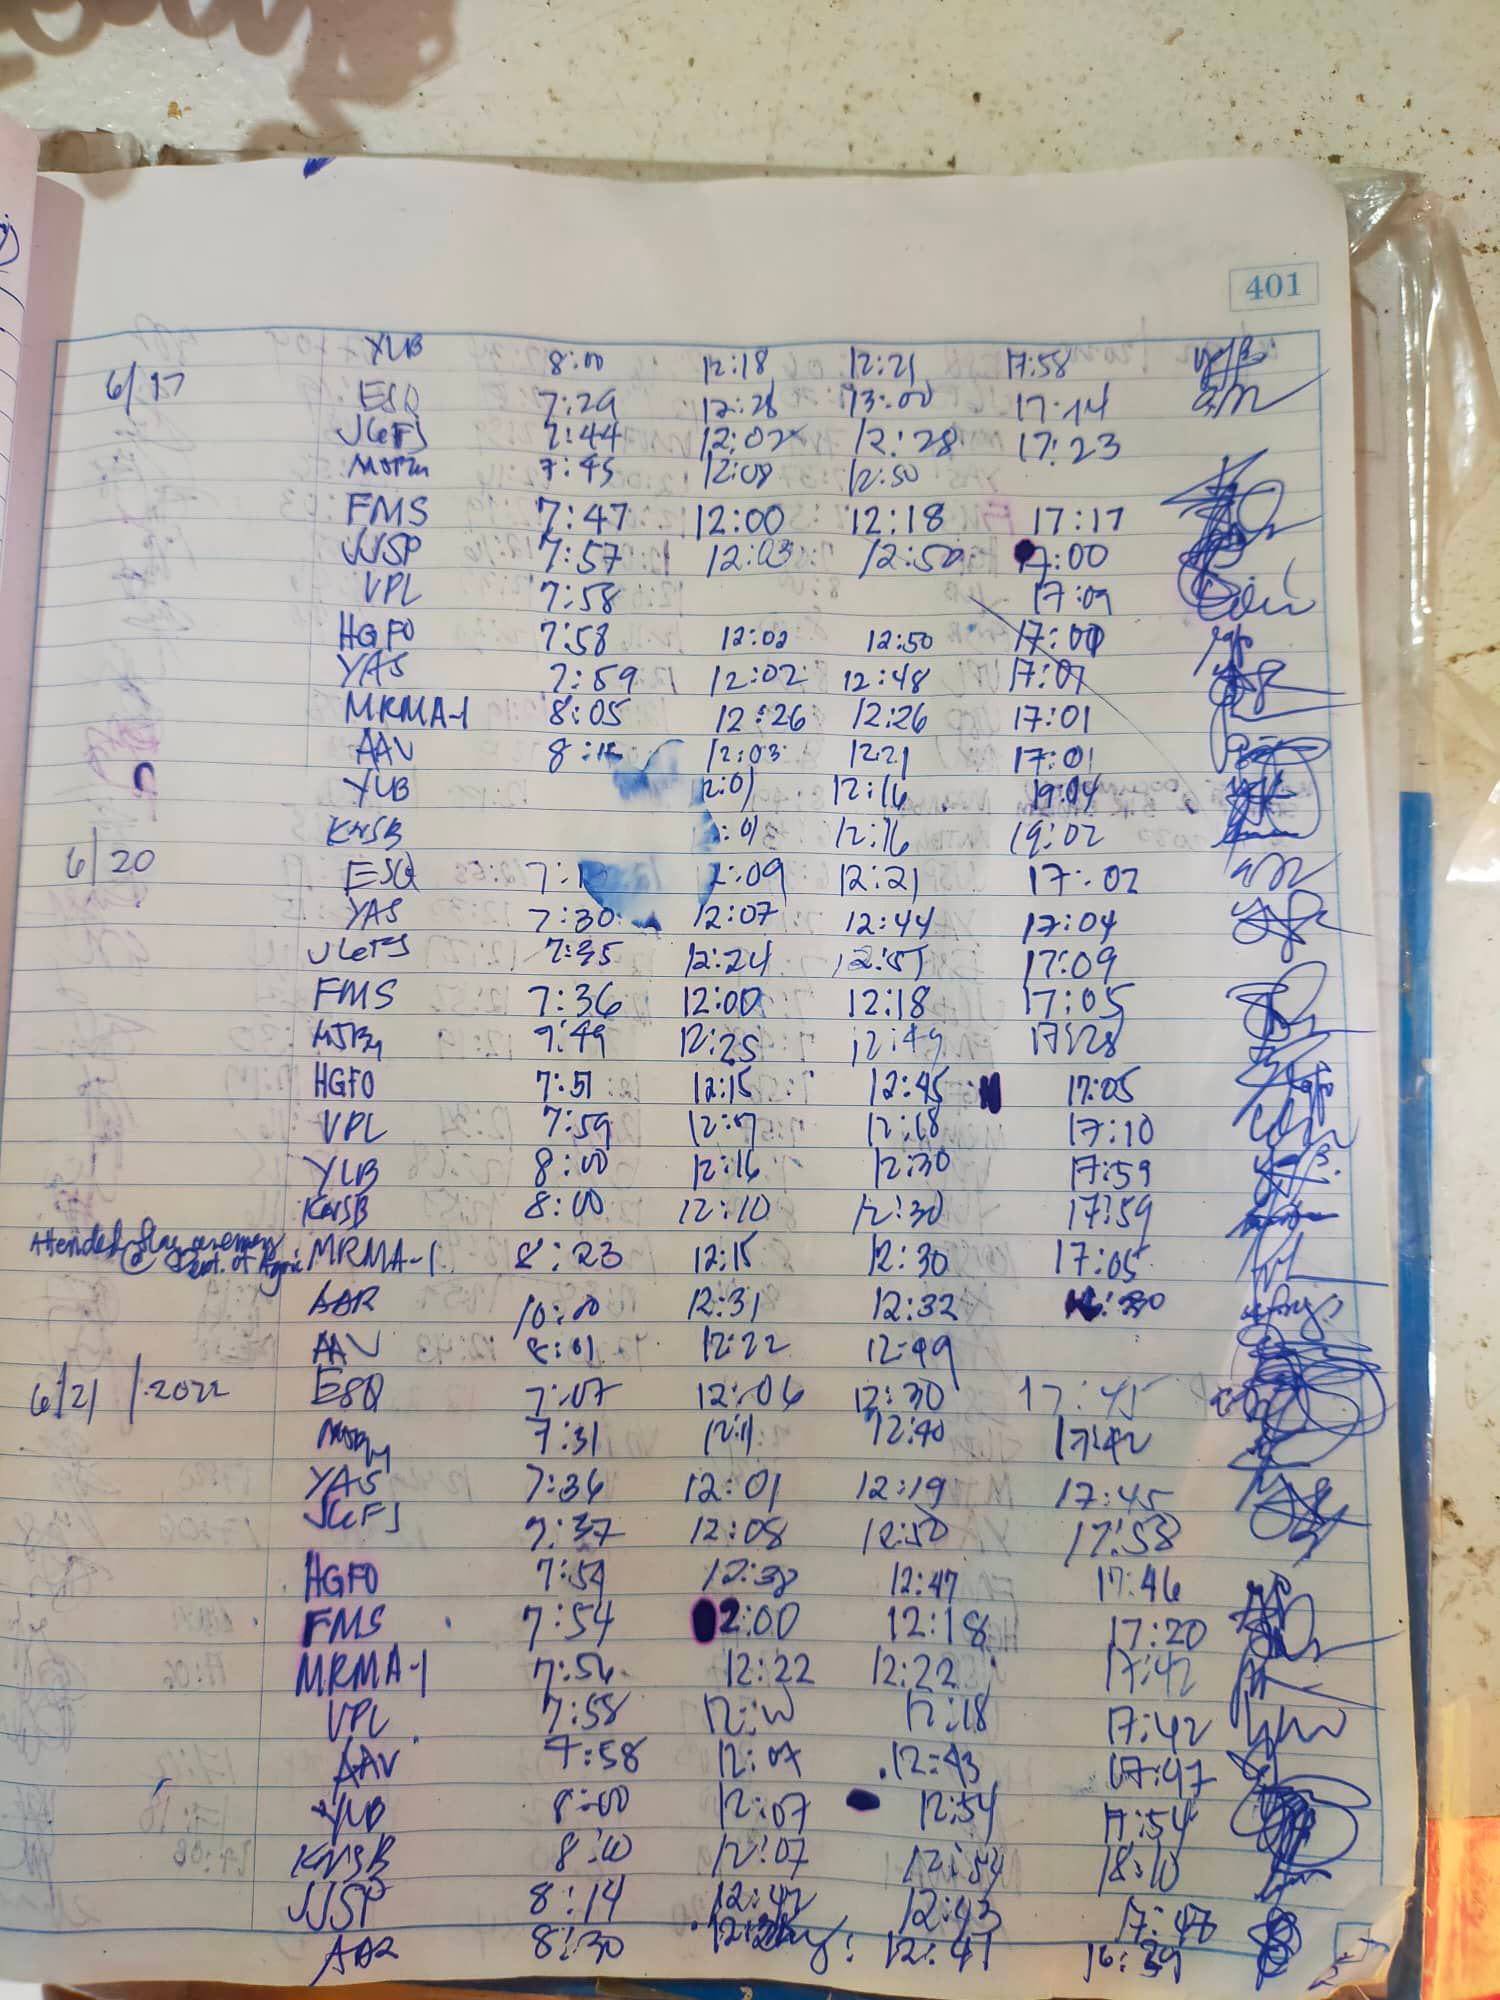 401
YLB 8:00 12:18 12:21 17:58
6/17 ESQ 7:29 12:28 13:00 17:14
JCEFJ 7:44 12:02 12:28 17:23
7:45 12:08 12:50
FMS 7:47 12:00 12:18 17:17
JJSP 7:57 12:03 12:50 17:00
VPL 7:58 17:09
HGFO 7:58 12:02 12:50 17:00
YAS 7:59 12:02 12:48 17:01
MRMA-1 8:05 12:26 12:26 17:01
AAV 12:03 1221 17:01
YLB 12:01 12:16 19:04
KNSB :01 12:16 19:02
6/20 ESQ 12:09 12:21 17:02
YAS 7:30 12:07 12:44 17:04
JCEFJ 7:35 12:24 12:51 17:09
FMS 7:36 12:00 12:18 17:05
12:25 12:49 17:28
HGFO 7:51 12:15 12:45 17:05
VPL 7:59 12:18 17:10
YLB 8:00 12:16 12:30 17:59
KNSB 8:00 12:10 12:30 17:59
Attended flag ceremony
@ Dept. of Agri MRMA-1 8:23 12:15 12:30 17:05
AAR 10:00 12:31 12:32
AAV 8:01 12:22 12:49
6/21/2022 ESQ 7:07 12:06 12:30 17:45
7:31 12:11 12:40 17:42
YAS 7:36 12:01 12:19 17:45
JCEFJ 7:37 12:08 12:50 17:58
HGFO 7:54 12:47 17:46
FMS 7:54 12:00 12:18 17:20
MRMA-1 7:56 12:22 12:22 17:42
VPL 7:58 12:18 17:42
AAV 7:58 12:07 12:43 17:47
YLB 8:00 12:07 12:54 17:54
KNSB 8:10 12:07 12:54 18:10
JJSP 8:14 12:42 12:43 17:47
AAR 8:30 12:41 16:39